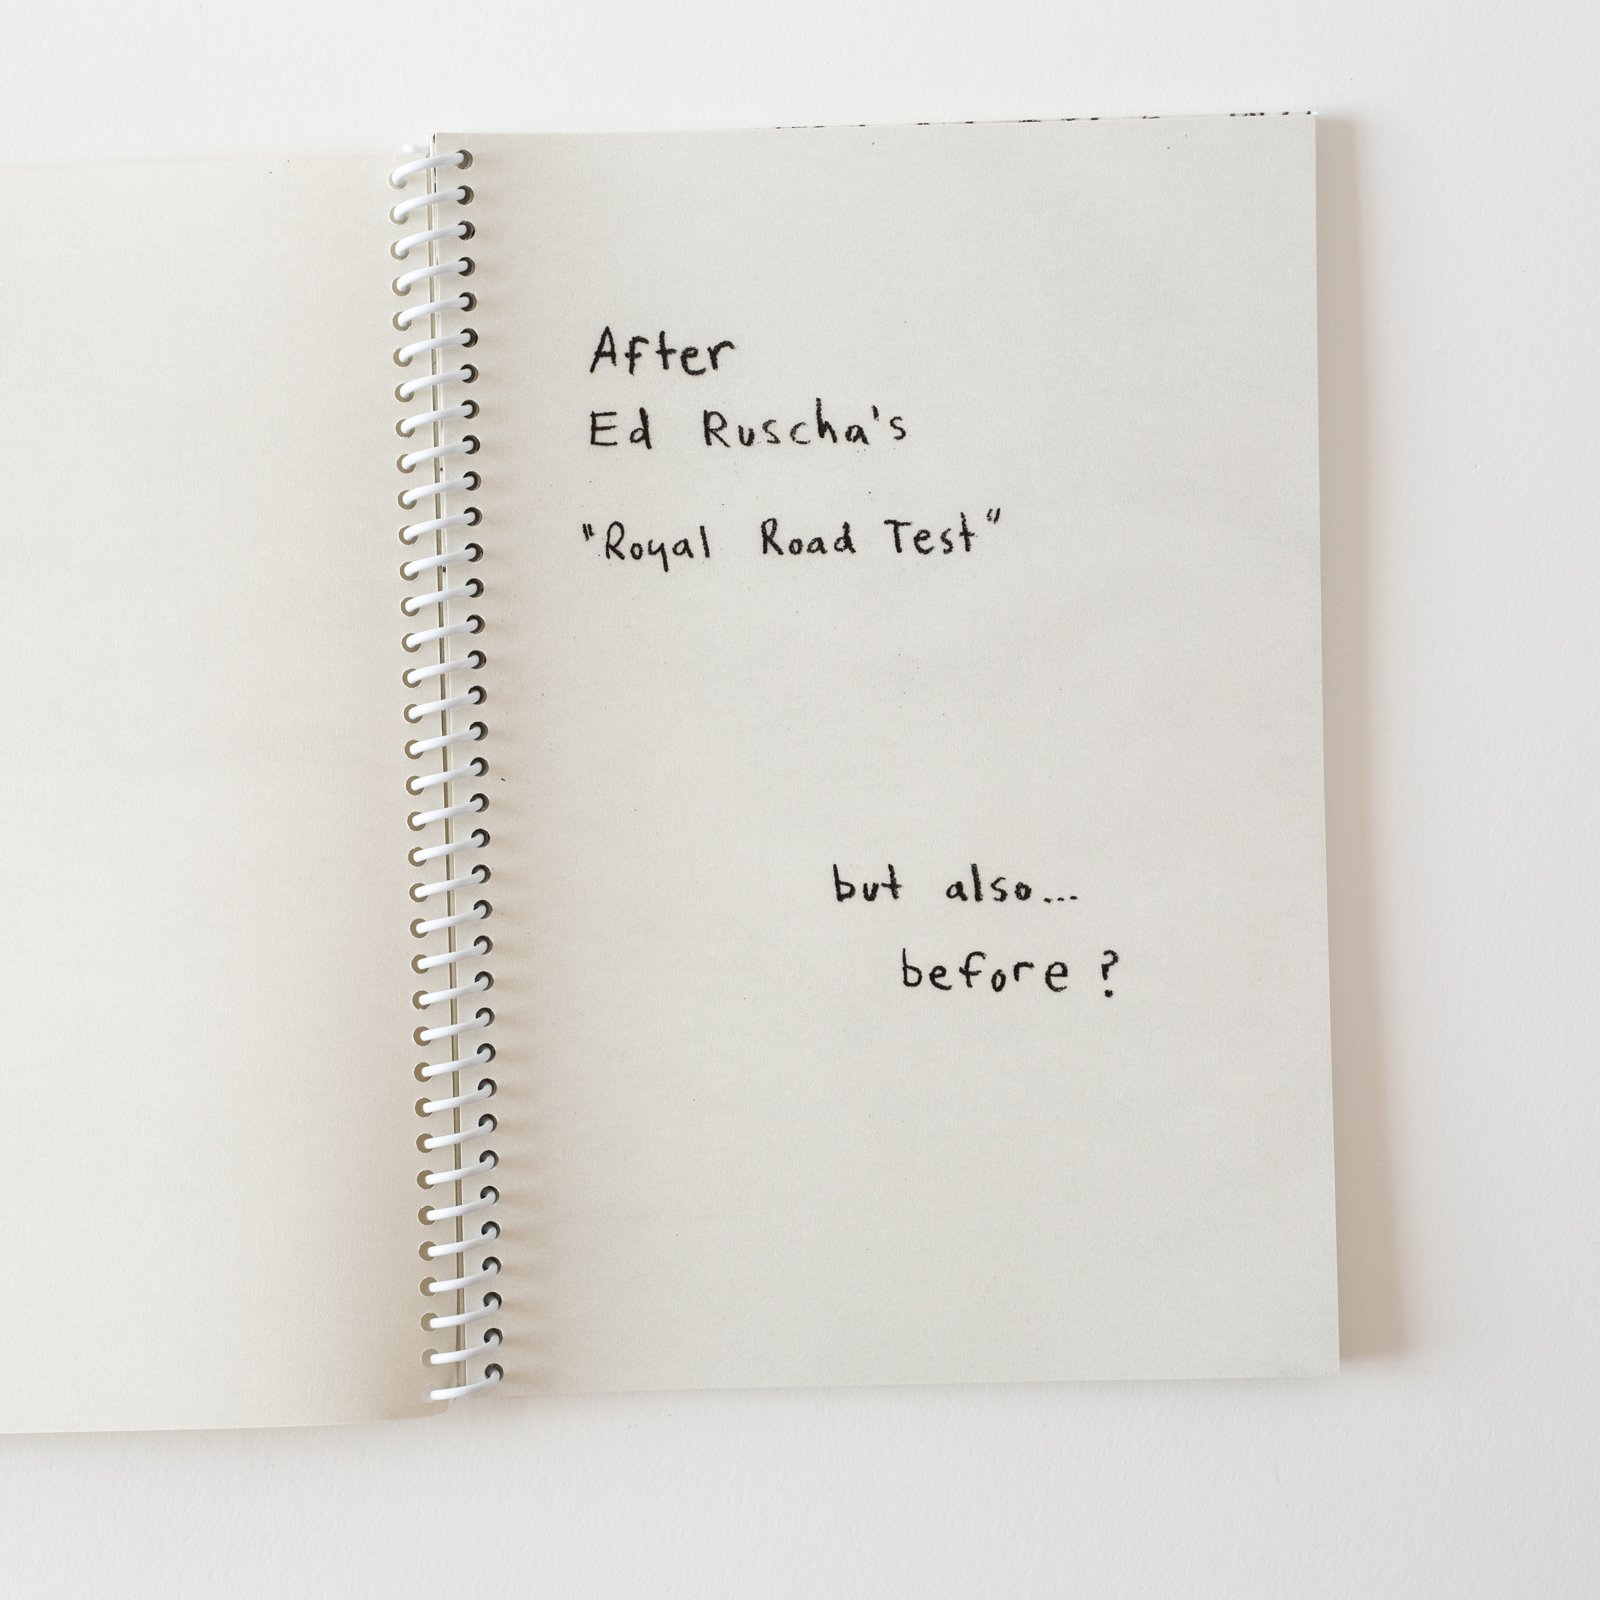 After
Ed Ruscha's
"Royal Road Test"
but also...
before ?